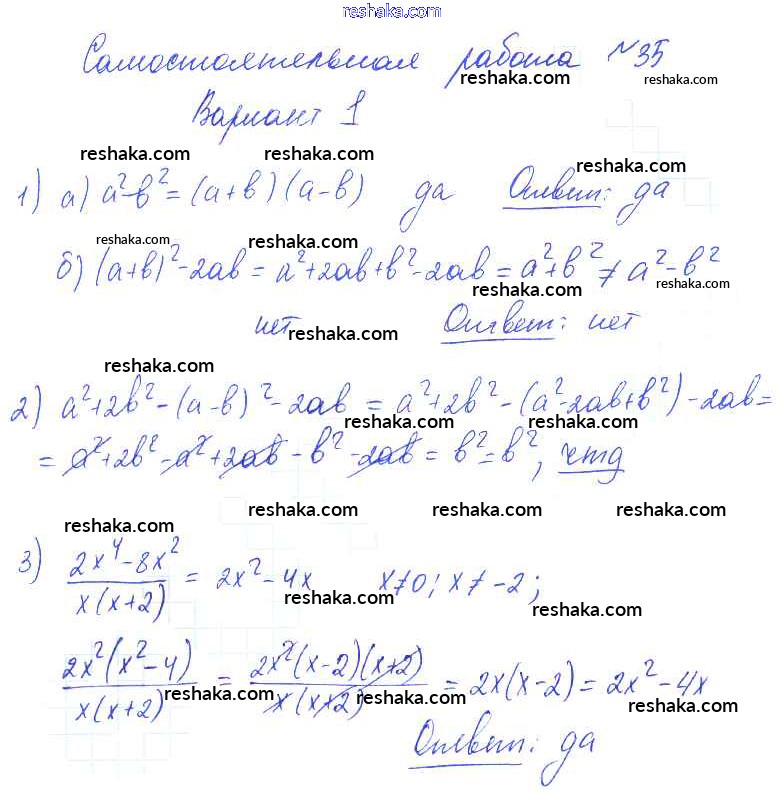 reshaka.com
Самостоятельная работа №35
reshaka.com reshaka.com
Вариант 1
reshaka.com reshaka.com reshaka.com
1) а) a²-b² = (a+b)(a-b) да Ответ: да
reshaka.com reshaka.com
б) (a+b)²-2ab = a²+2ab+b²-2ab = a²+b² ≠ a²-b²
reshaka.com reshaka.com
нет Ответ: нет
reshaka.com
reshaka.com
2) a²+2b²-(a-b)²-2ab = a²+2b²-(a²-2ab+b²)-2ab=
reshaka.com reshaka.com
= a²+2b²-a²+2ab-b²-2ab = b²=b², чтд
reshaka.com reshaka.com reshaka.com reshaka.com
3) (2x⁴-8x²)/(x(x+2)) = 2x²-4x x≠0; x≠-2;
reshaka.com reshaka.com
(2x²(x²-4))/(x(x+2)) = (2x²(x-2)(x+2))/(x(x+2)) = 2x(x-2) = 2x²-4x
reshaka.com reshaka.com reshaka.com reshaka.com
Ответ: да